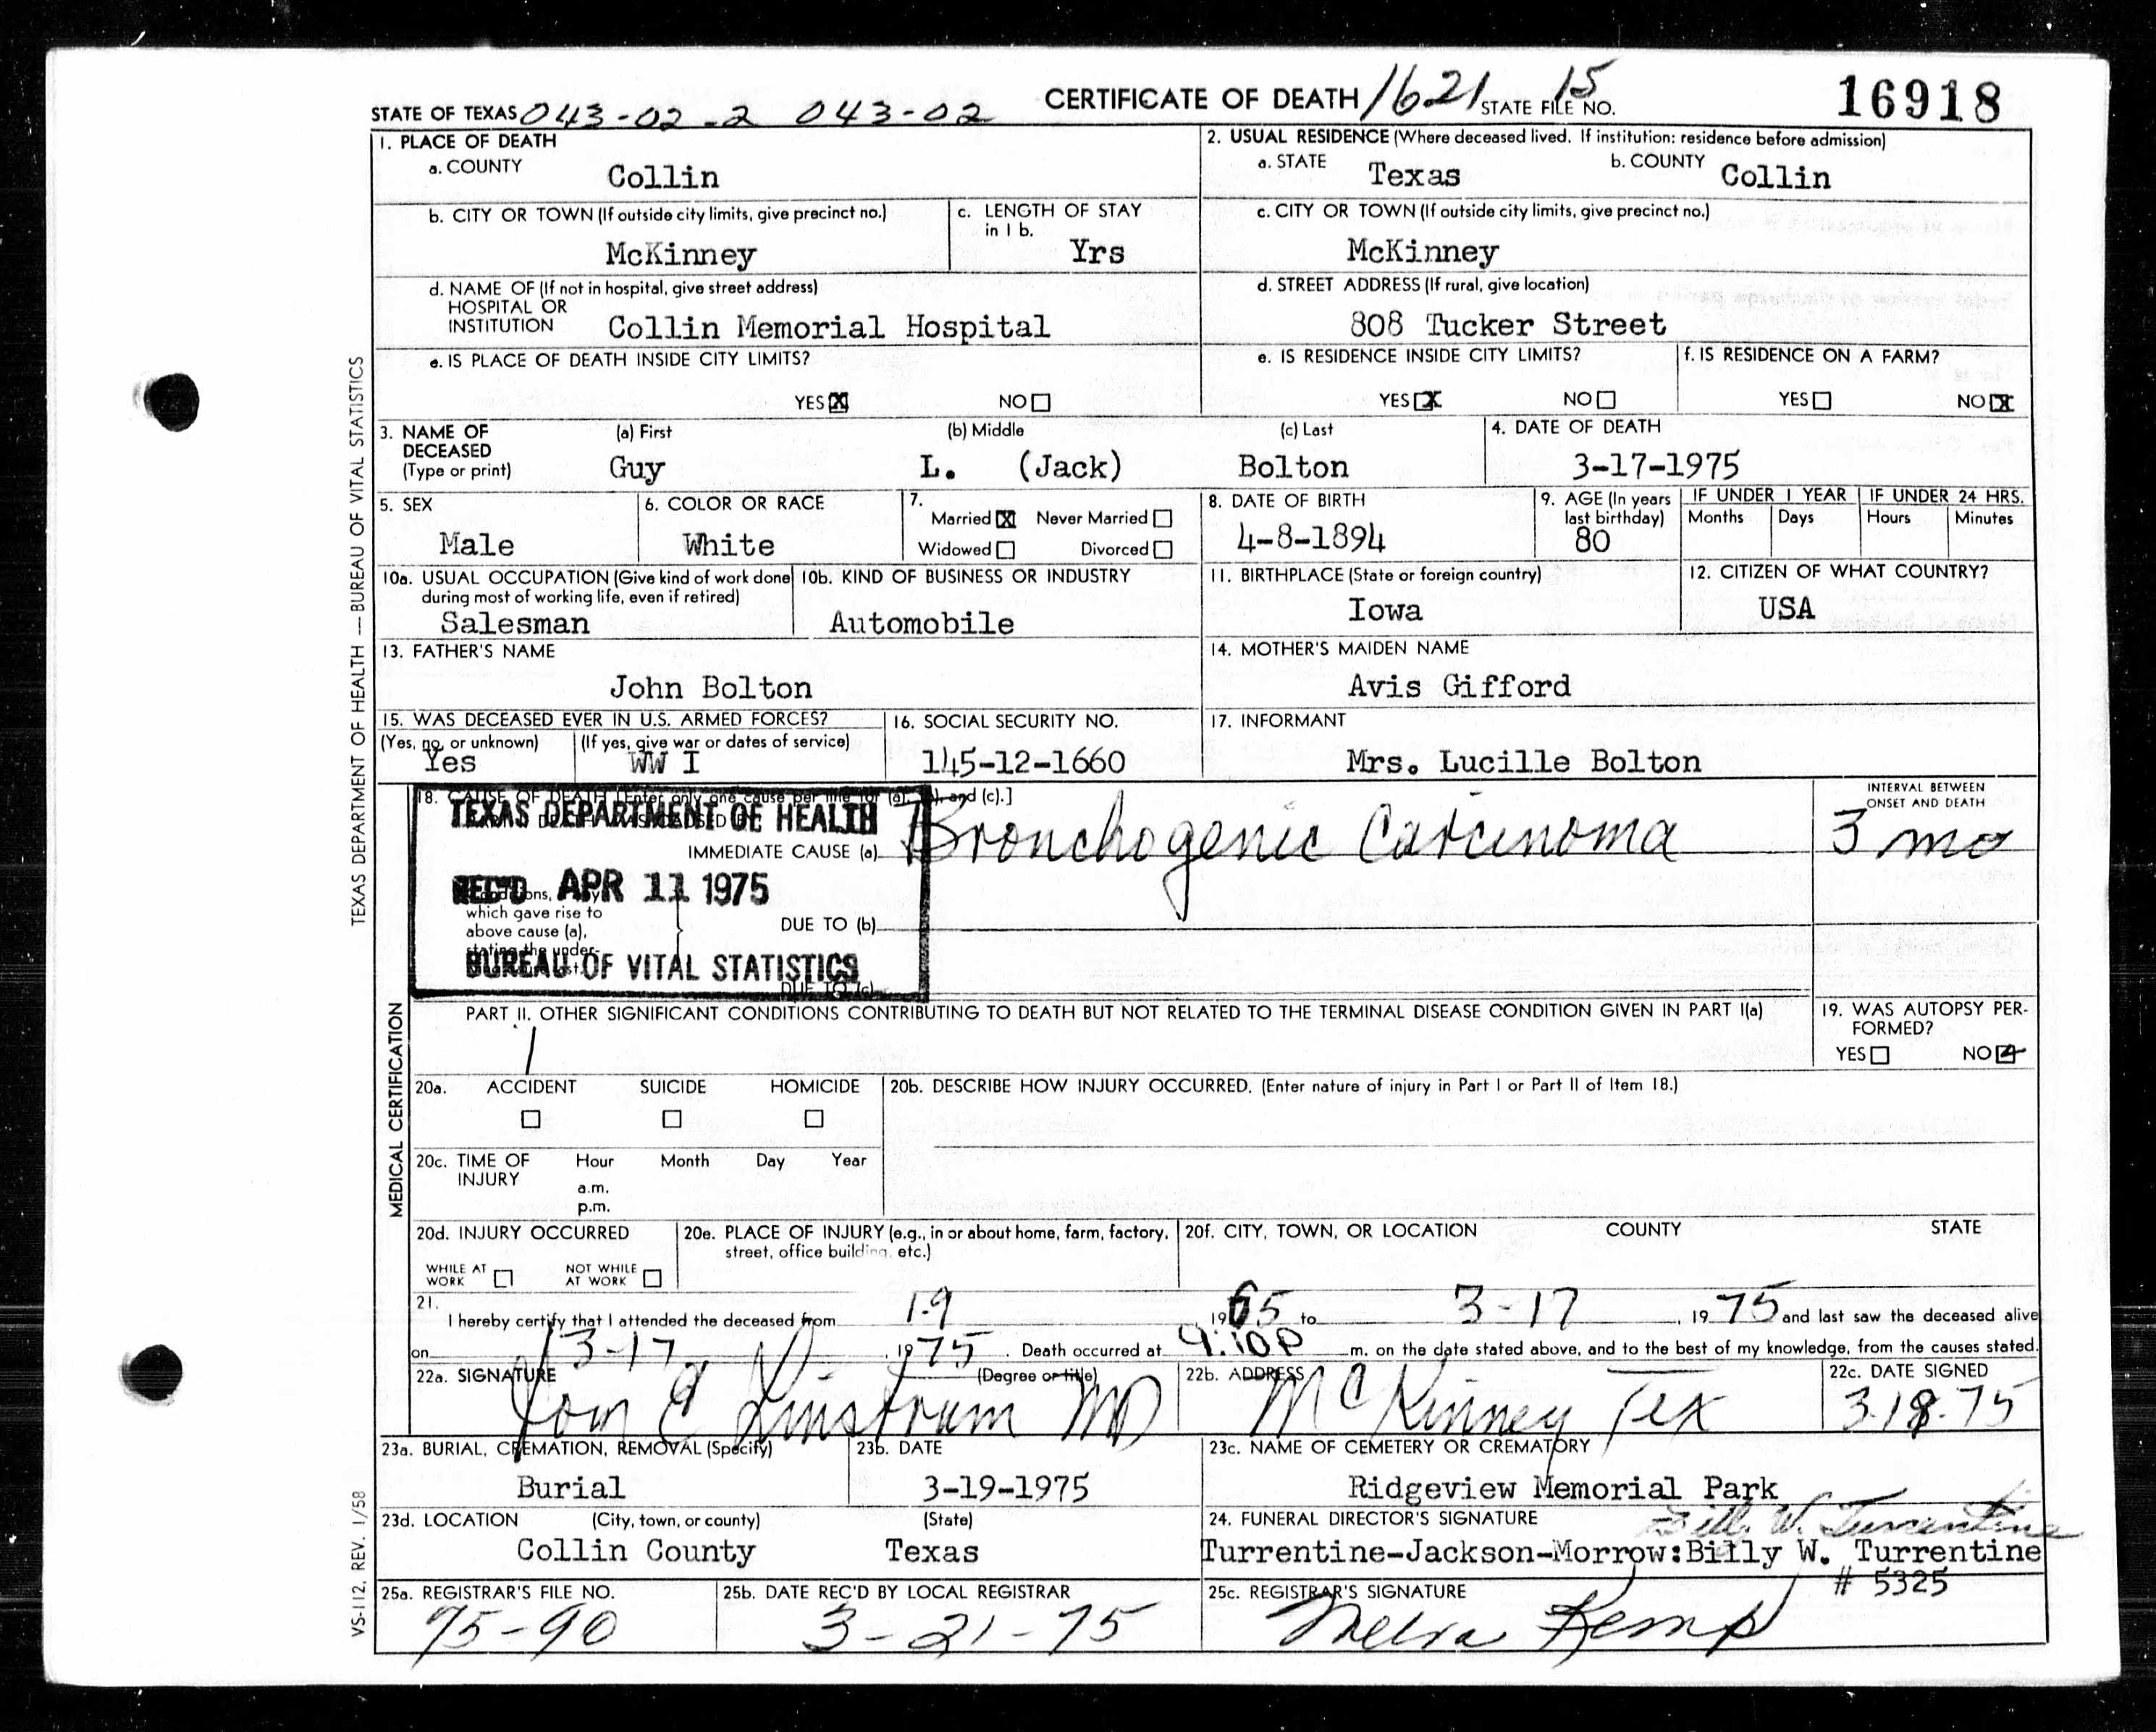 STATE OF TEXAS 043-02-2 043-02 CERTIFICATE OF DEATH 1621 STATE FILE NO. 15 16918
1. PLACE OF DEATH
a. COUNTY Collin
2. USUAL RESIDENCE (Where deceased lived. If institution: residence before admission)
a. STATE Texas b. COUNTY Collin
b. CITY OR TOWN (If outside city limits, give precinct no.) McKinney
c. LENGTH OF STAY in 1 b. Yrs
c. CITY OR TOWN (If outside city limits, give precinct no.) McKinney
d. NAME OF (If not in hospital, give street address)
HOSPITAL OR
INSTITUTION Collin Memorial Hospital
d. STREET ADDRESS (If rural, give location)
808 Tucker Street
e. IS PLACE OF DEATH INSIDE CITY LIMITS?
YES X NO
e. IS RESIDENCE INSIDE CITY LIMITS?
YES X NO
f. IS RESIDENCE ON A FARM?
YES NO X
3. NAME OF DECEASED (Type or print)
(a) First (b) Middle (c) Last
Guy L. (Jack) Bolton
4. DATE OF DEATH
3-17-1975
5. SEX
Male
6. COLOR OR RACE
White
7. Married X Never Married
Widowed Divorced
8. DATE OF BIRTH
4-8-1894
9. AGE (In years last birthday)
80
IF UNDER 1 YEAR IF UNDER 24 HRS.
Months Days Hours Minutes
10a. USUAL OCCUPATION (Give kind of work done during most of working life, even if retired)
Salesman
10b. KIND OF BUSINESS OR INDUSTRY
Automobile
11. BIRTHPLACE (State or foreign country)
Iowa
12. CITIZEN OF WHAT COUNTRY?
USA
13. FATHER'S NAME
John Bolton
14. MOTHER'S MAIDEN NAME
Avis Gifford
15. WAS DECEASED EVER IN U.S. ARMED FORCES?
(Yes, no, or unknown) (If yes, give war or dates of service)
Yes WW I
16. SOCIAL SECURITY NO.
145-12-1660
17. INFORMANT
Mrs. Lucille Bolton
18. CAUSE OF DEATH [Enter only one cause per line for (a), (b), and (c).]
TEXAS DEPARTMENT OF HEALTH
IMMEDIATE CAUSE (a) Bronchogenic Carcinoma
INTERVAL BETWEEN
ONSET AND DEATH
3 mo
REC'D APR 11 1975
which gave rise to
above cause (a),
stating the under-
DUE TO (b)
BUREAU OF VITAL STATISTICS
DUE TO (c)
PART II. OTHER SIGNIFICANT CONDITIONS CONTRIBUTING TO DEATH BUT NOT RELATED TO THE TERMINAL DISEASE CONDITION GIVEN IN PART I(a)
19. WAS AUTOPSY PERFORMED?
YES NO
20a. ACCIDENT SUICIDE HOMICIDE
20b. DESCRIBE HOW INJURY OCCURRED. (Enter nature of injury in Part I or Part II of Item 18.)
20c. TIME OF INJURY Hour Month Day Year
a.m.
p.m.
20d. INJURY OCCURRED
WHILE AT WORK NOT WHILE AT WORK
20e. PLACE OF INJURY (e.g., in or about home, farm, factory, street, office building, etc.)
20f. CITY, TOWN, OR LOCATION COUNTY STATE
21.
I hereby certify that I attended the deceased from 1-9 1965 to 3-17, 1975 and last saw the deceased alive
on 3-17, 1975. Death occurred at 9:10P m. on the date stated above, and to the best of my knowledge, from the causes stated.
22a. SIGNATURE (Degree or title)
Tom E Linstrum MD
22b. ADDRESS
McKinney Tex
22c. DATE SIGNED
3-18-75
23a. BURIAL, CREMATION, REMOVAL (Specify)
Burial
23b. DATE
3-19-1975
23c. NAME OF CEMETERY OR CREMATORY
Ridgeview Memorial Park
23d. LOCATION (City, town, or county) (State)
Collin County Texas
24. FUNERAL DIRECTOR'S SIGNATURE
Billy W. Turrentine
Turrentine-Jackson-Morrow:Billy W. Turrentine
# 5325
25a. REGISTRAR'S FILE NO.
75-90
25b. DATE REC'D BY LOCAL REGISTRAR
3-21-75
25c. REGISTRAR'S SIGNATURE
Melva Kemp
TEXAS DEPARTMENT OF HEALTH — BUREAU OF VITAL STATISTICS
MEDICAL CERTIFICATION
VS-112, REV. 1/58